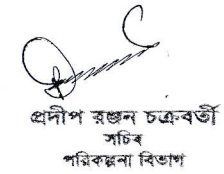 প্রদীপ রঞ্জন চক্রবর্তী
সচিব
পরিকল্পনা বিভাগ